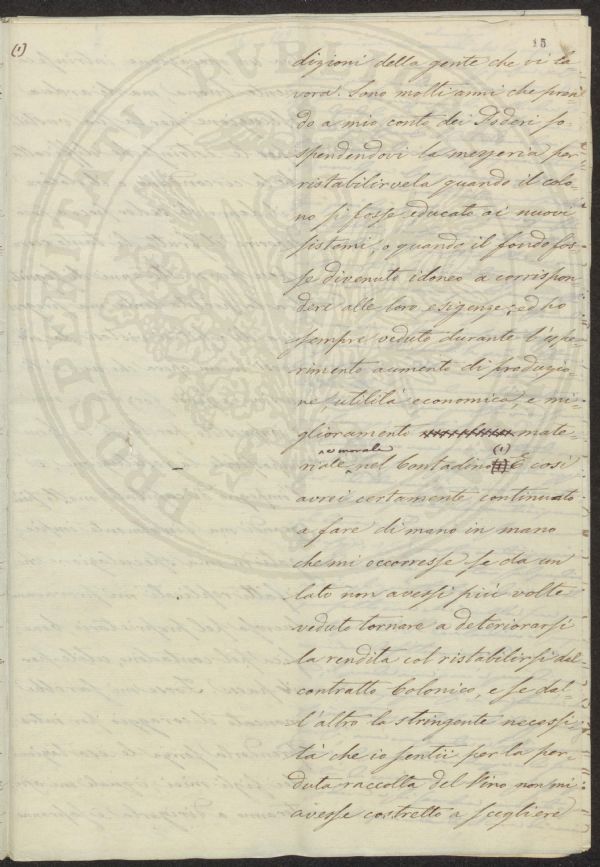 (1)
15
dizioni della gente che vi la-
vora. Sono molti anni che pren
do a mio conto dei Poderi so-
spendendovi la messeria per
ristabilirvela quando il colo-
no si fosse educato ai nuovi
sistemi, o quando il fondo fos-
se divenuto idoneo a corrispon
dere alle loro esigenze; ed ho
sempre veduto durante l'espe-
rimento aumento di produzio
ne, utilità economica, e mi-
glioramento mate-
e morale (1)
riale, nel Contadino. E così
avrei certamente continuato
a fare di mano in mano
che mi occorresse se da un
lato non avessi più volte
veduto tornare a deteriorarsi
la rendita col ristabilirsi del
contratto Colonico, e se dal-
l'altro la stringente necessi-
tà che io sentii per la per-
duta raccolta del Vino non mi
avesse costretto a scegliere
PROSPERITATI PUBLICAE